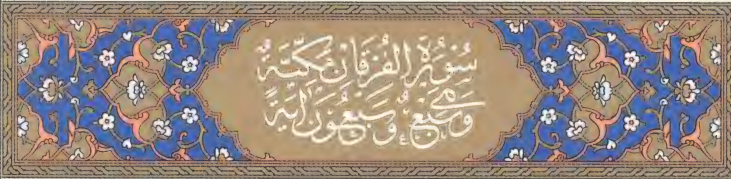 سُورَةُ الْفُرْقَانِ مَكِّيَّةٌ
وَهِيَ سَبْعٌ وَسَبْعُونَ اٰيَةً